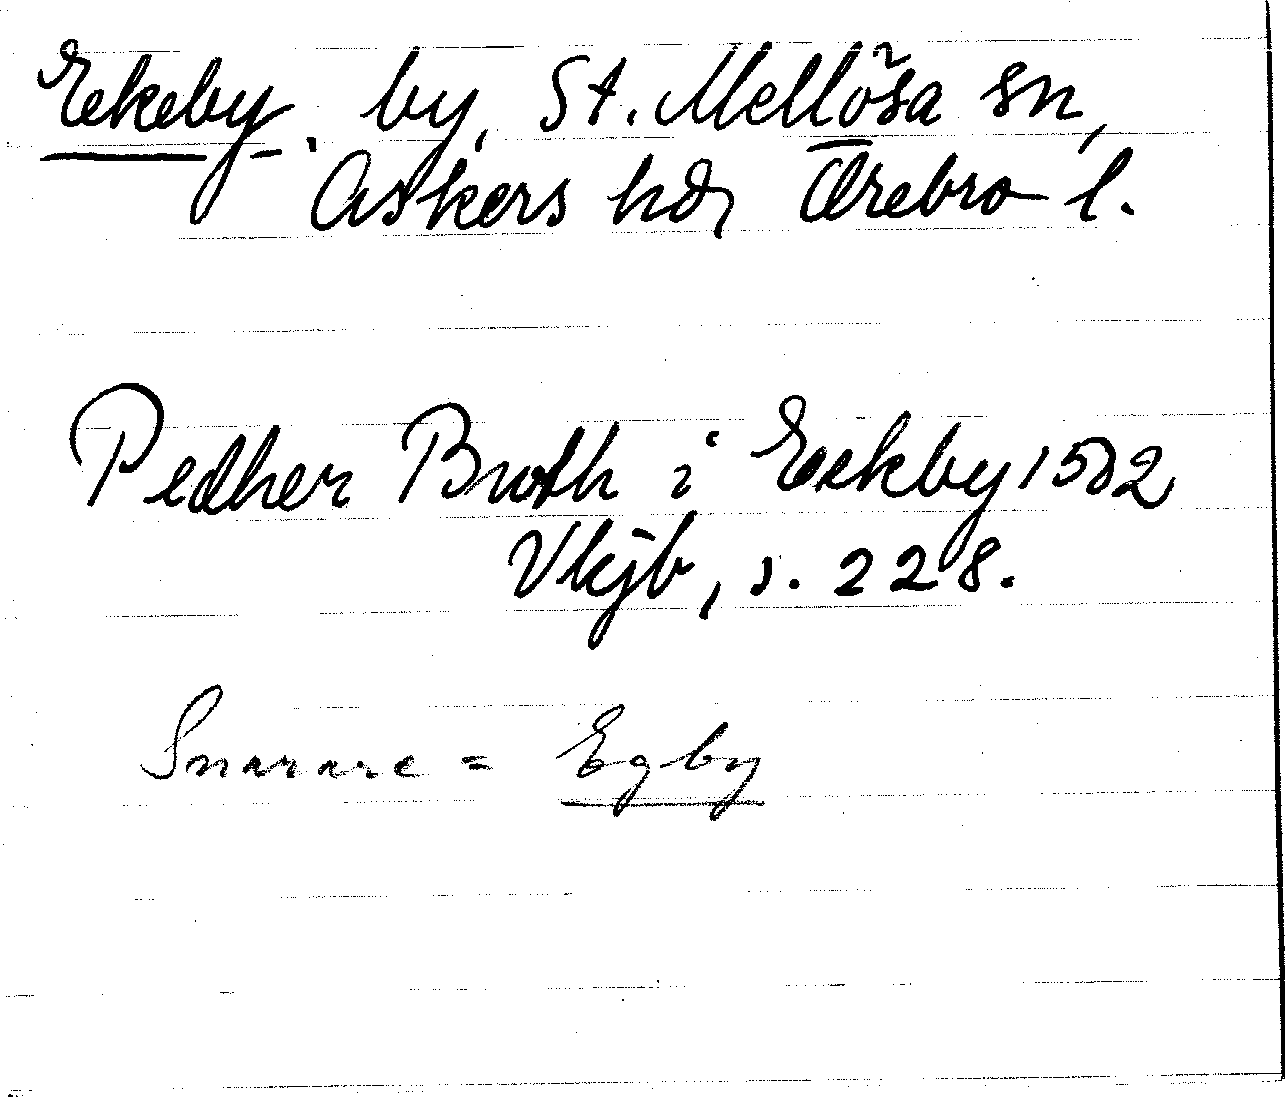 Eekeby. by, St. Mellösa sn,
Askers hd, Örebro l.
Pedher Broth i Eekby 1502
Vkjb, s. 228.
Snarare = Egby